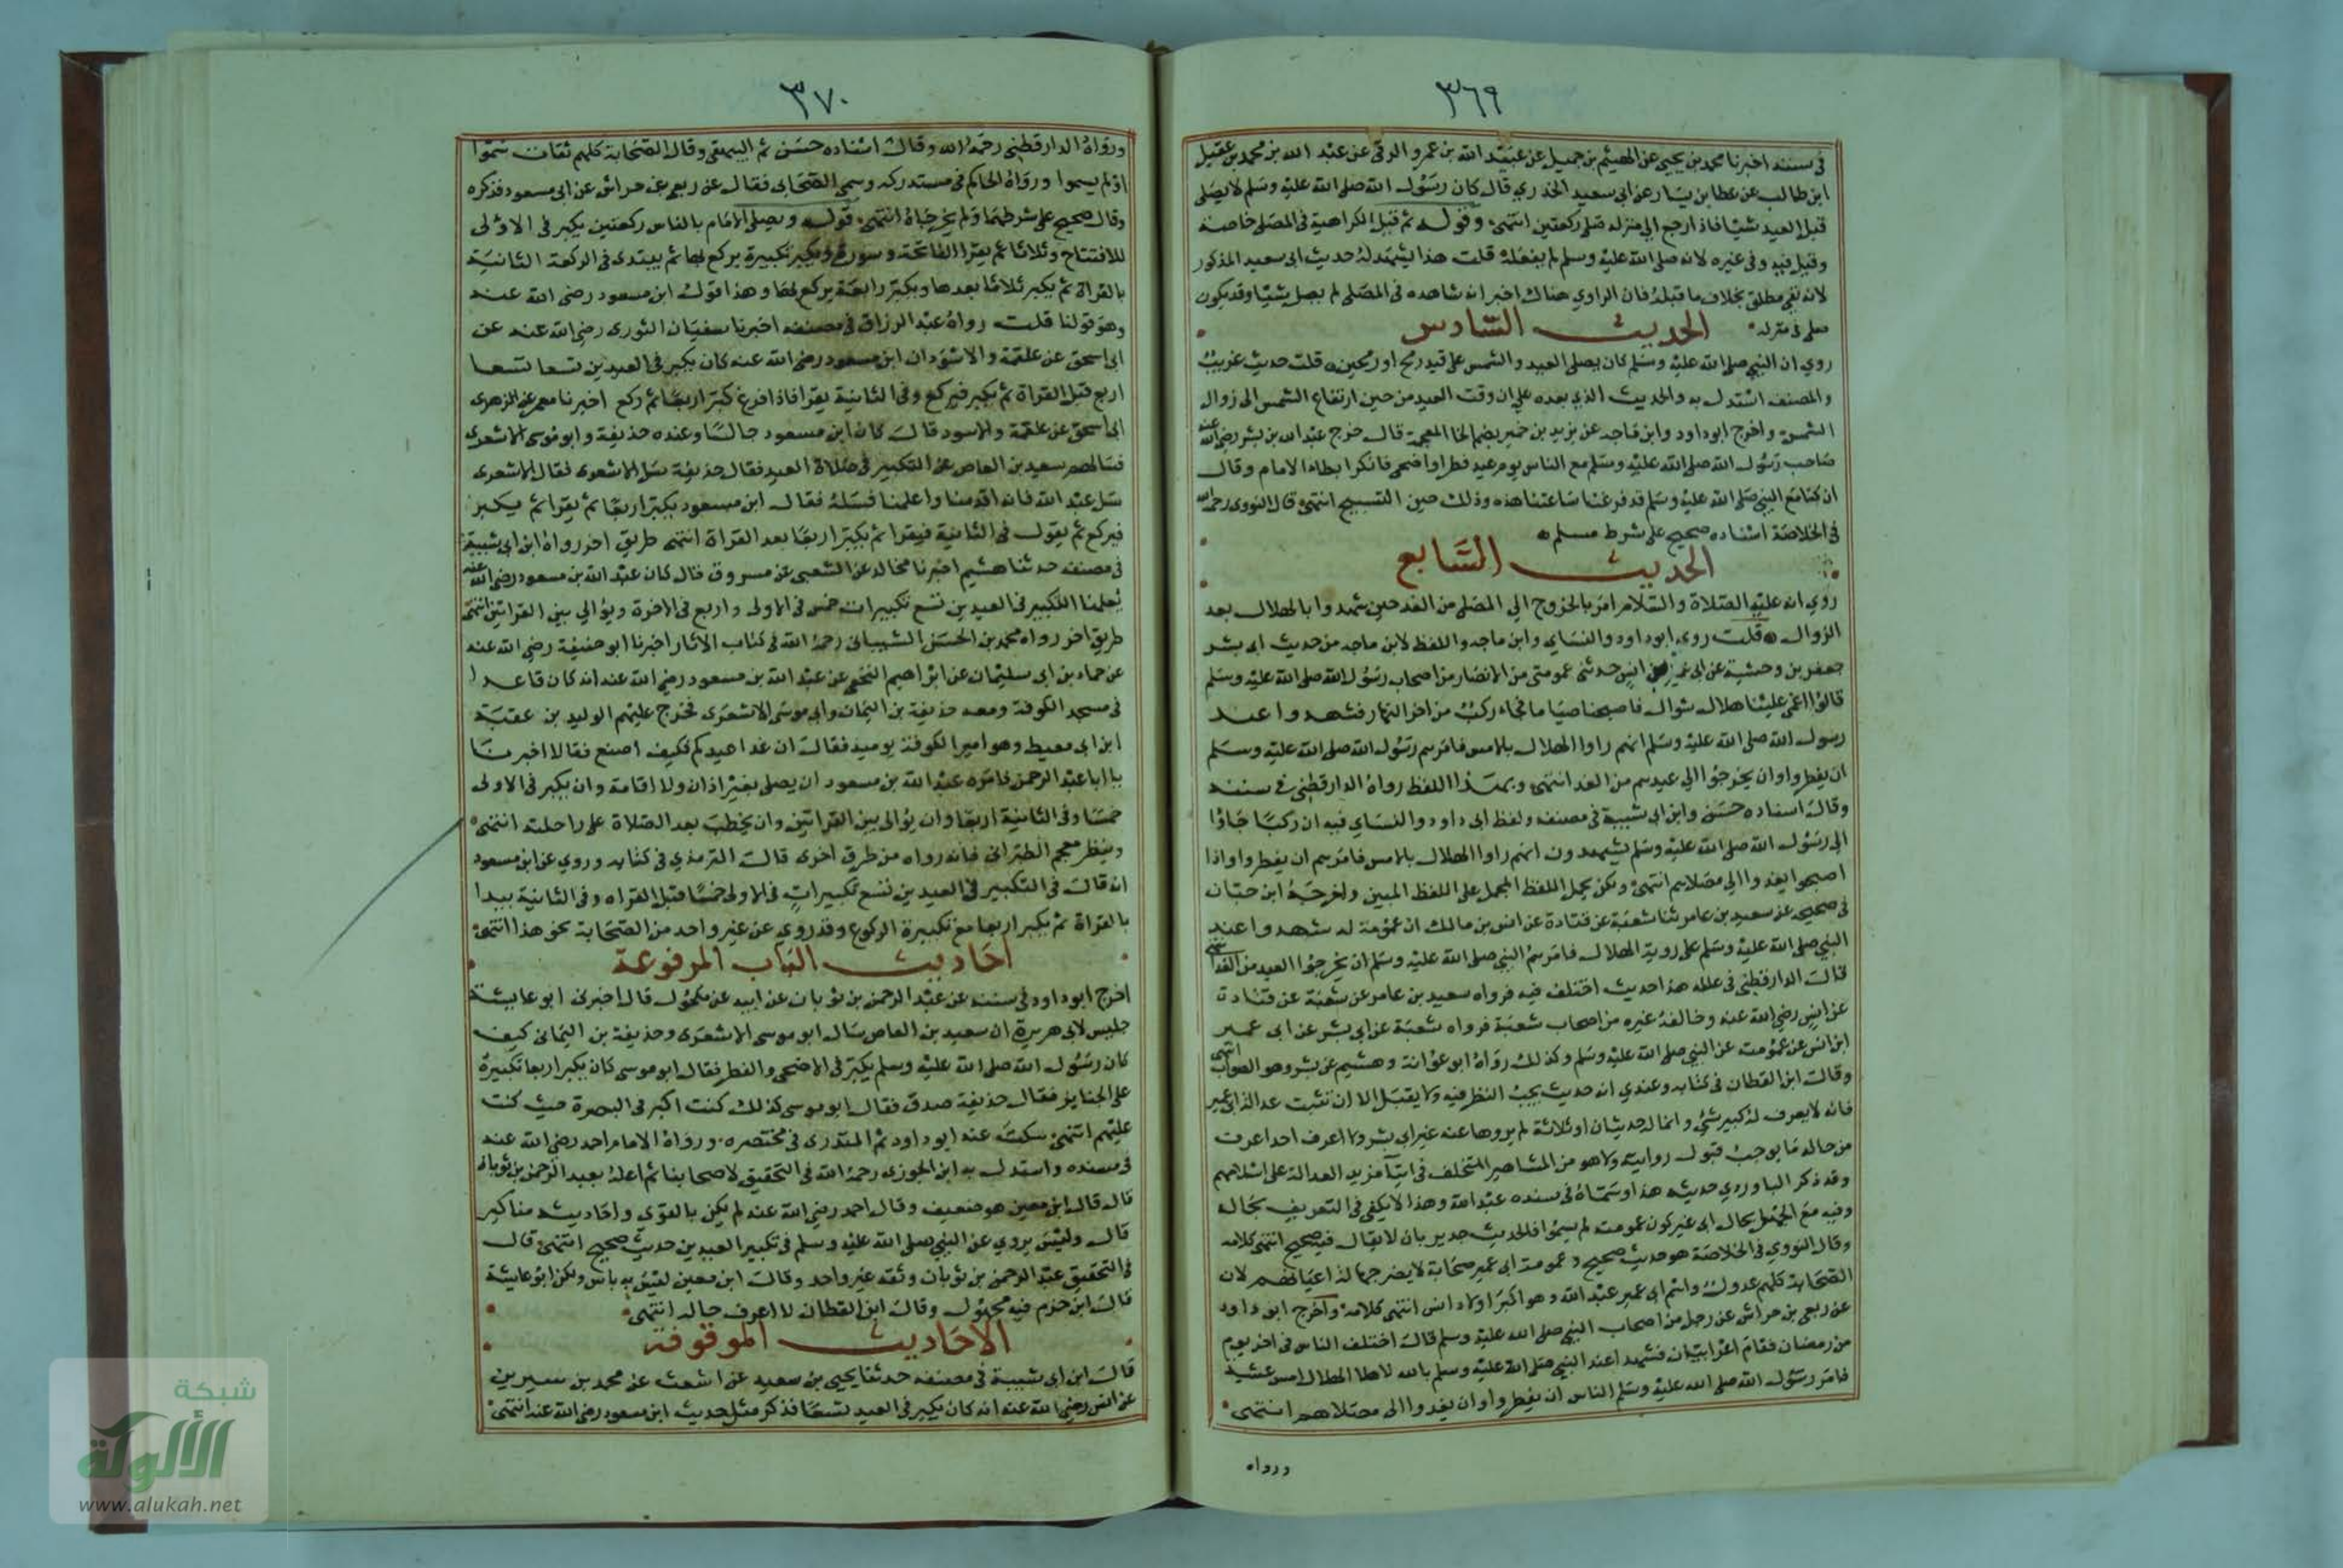 ٣٦٩
في سننه اخبرنا محمد بن يحيى عن الهيثم بن جميل عن عبيد الله بن عمرو الرقي عن عبد الله بن محمد بن عقيل
ابن طالب عن عطا بن يسار عن ابي سعيد الخدري قال كان رسول الله صلى الله عليه وسلم لا يصلي
قبل العيد شيا فاذا رجع الي منزله صلى ركعتين انتهى وقوله ثم قيل الكراهية في المصلى خاصة
وقيل فيه وفي غيره لانه صلى الله عليه وسلم لم يفعله قلت هذا يشهد له حديث ابي سعيد المذكور
لانه نفي مطلق بخلاف ما قبله فان الراوي هناك اخبر انه شاهده في المصلى لم يصل شيا وقد يكون
صلى في منزله الحديث السادس
روي ان النبي صلى الله عليه وسلم كان يصلي العيد والشمس على قيد رمح او رمحين قلت حديث غريب
والمصنف استدل به والحديث الذي بعده علي ان وقت العيد من حين ارتفاع الشمس الى زوال
الشمس واخرج ابو داود وابن ماجه عن يزيد بن خمير بضم الخا المعجمة قال خرج عبد الله بن بشر رضي الله عنه
صاحب رسول الله صلى الله عليه وسلم مع الناس يوم عيد فطر او اضحى فانكر ابطاء الامام وقال
ان كنا مع النبي صلى الله عليه وسلم قد فرغنا ساعتنا هذه وذلك حين التسبيح انتهى قال النووي رحمه الله
في الخلاصة اسناده صحيح على شرط مسلم
الحديث السابع
روي انه عليه الصلاة والسلام امر بالخروج الي المصلى من الغد حين شهدوا بالهلال بعد
الزوال قلت روى ابو داود والنساي وابن ماجه واللفظ لابن ماجه من حديث ابي بشر
جعفر بن وحشية عن ابي عمير بن انس حدثني عمومتي من الانصار من اصحاب رسول الله صلى الله عليه وسلم
قالوا اغمي علينا هلال شوال فاصبحنا صياما فجاء ركب من اخر النهار فشهدوا عند
رسول الله صلى الله عليه وسلم انهم راوا الهلال بالامس فامرهم رسول الله صلى الله عليه وسلم
ان يفطروا وان يخرجوا الي عيدهم من الغد انتهى وبهذا اللفظ رواه الدارقطني في سننه
وقال اسناده حسن وابن ابي شيبة في مصنفه ولفظ ابي داود والنساي فيه ان ركبا جاؤا
الى رسول الله صلى الله عليه وسلم يشهدون انهم راوا الهلال بالامس فامرهم ان يفطروا واذا
اصبحوا يغدوا الي مصلاهم انتهى ولكن يحمل اللفظ المجمل على اللفظ المبين واخرجه ابن حبان
في صحيحه عن سعيد بن عامر ثنا شعبة عن قتادة عن انس بن مالك ان عمومة له شهدوا عند
النبي صلى الله عليه وسلم على روية الهلال فامرهم النبي صلى الله عليه وسلم ان يخرجوا العيد من الغد انتهى
قال الدارقطني في علله هذا حديث اختلف فيه فرواه سعيد بن عامر عن شعبة عن قتادة
عن انس رضي الله عنه وخالفه غيره من اصحاب شعبة فرواه شعبة عن ابي بشر عن ابي عمير
ابن انس عن عمومته عن النبي صلى الله عليه وسلم وكذلك رواه ابو عوانة وهشيم عن بشر وهو الصواب انتهى
وقال ابن القطان في كتابه وعندي انه حديث يجب النظر فيه ولا يقبل الا ان تثبت عدالة ابي عمير
فانه لا يعرف له كبير شي وانما له حديثان او ثلاثة لم يروها عنه غير ابي بشر ولا اعرف احدا عرف
من حاله ما يوجب قبول روايته ولا هو من المشاهير المختلف في ابتغا مزيد العدالة على اسلامهم
وقد ذكر الباوردي حديثه هذا وسماه في سنده عبد الله وهذا لا يكفي في التعريف بحاله
وفيه مع الجهل بحال ابي عمير كون عمومته لم يسموا فالحديث جدير بان لا يقال فيه صحيح انتهى كلامه
وقال النووي في الخلاصة هو حديث صحيح وعمومة ابي عمير صحابة لا يضر جهالة اعيانهم لان
الصحابة كلهم عدول واسم ابي عمير عبد الله وهو اكبر اولاد انس انتهى كلامه واخرج ابو داود
عن ربعي بن حراش عن رجل من اصحاب النبي صلى الله عليه وسلم قال اختلف الناس في اخر يوم
من رمضان فقام اعرابيان فشهدا عند النبي صلى الله عليه وسلم بالله لاهلا الهلال امس عشية
فامر رسول الله صلى الله عليه وسلم الناس ان يفطروا وان يغدوا الى مصلاهم انتهى
ورواه
٣٧٠
ورواه الدارقطني رحمه الله وقال اسناده حسن ثم البيهقي وقال الصحابة كلهم ثقات سموا
او لم يسموا ورواه الحاكم في مستدركه وسمى الصحابي فقال عن ربعي عن حراش عن ابي مسعود فذكره
وقال صحيح على شرطهما ولم يخرجاه انتهى قوله ويصلي الامام بالناس ركعتين يكبر في الاولى
للافتتاح وثلاثا ثم يقرا الفاتحة وسورة ويكبر تكبيرة يركع بها ثم يبتدى في الركعة الثانية
بالقراة ثم يكبر ثلاثا بعدها ويكبر رابعة يركع بها وهذا قول ابن مسعود رضي الله عنه
وهو قولنا قلت رواه عبد الرزاق في مصنفه اخبرنا سفيان الثوري رضي الله عنه عن
ابي اسحق عن علقمة والاسود ان ابن مسعود رضي الله عنه كان يكبر في العيدين تسعا تسعا
اربع قبل القراة ثم يكبر فيركع وفي الثانية يقرا فاذا فرغ كبر اربعا ثم ركع اخبرنا معمر عن الزهري
ابي اسحق عن علقمة والاسود قال كان ابن مسعود جالسا وعنده حذيفة وابو موسى الاشعري
فسالهم سعيد بن العاص عن التكبير في صلاة العيد فقال حذيفة سل الاشعري فقال الاشعري
سل عبد الله فانه اقدمنا واعلمنا فسله فقال ابن مسعود يكبر اربعا ثم يقرا ثم يكبر
فيركع ثم يقول في الثانية فيقرا ثم يكبر اربعا بعد القراة انتهى طريق اخر رواه ابن ابي شيبة
في مصنفه حدثنا هشيم اخبرنا مخالد عن الشعبي عن مسروق قال كان عبد الله بن مسعود رضي الله عنه
يعلمنا التكبير في العيدين تسع تكبيرات خمس في الاولى واربع في الاخرة ويوالي بين القراتين انتهى
طريق اخر رواه محمد بن الحسن الشيباني رحمه الله في كتاب الاثار اخبرنا ابو حنيفة رضي الله عنه
عن حماد بن ابي سليمان عن ابراهيم النخعي عن عبد الله بن مسعود رضي الله عنه انه كان قاعدا
في مسجد الكوفة ومعه حذيفة بن اليمان وابي موسى الاشعري فخرج عليهم الوليد بن عقبة
ابن ابي معيط وهو امير الكوفة يوميذ فقال ان غدا عيدكم فكيف اصنع فقالا اخبرنا
يا ابا عبد الرحمن فامره عبد الله بن مسعود ان يصلي بغير اذان ولا اقامة وان يكبر في الاولى
خمسا وفي الثانية اربعا وان يوالى بين القراتين وان يخطب بعد الصلاة على راحلته انتهى
وينظر معجم الطبراني فانه رواه من طرق اخرى قال الترمذي في كتابه وروي عن ابن مسعود
انه قال في التكبير في العيدين تسع تكبيرات في الاولى خمسا قبل القراه وفي الثانية يبدا
بالقراة ثم يكبر اربعا مع تكبيرة الركوع وقد روي عن غير واحد من الصحابة نحو هذا انتهى
احاديث الباب المرفوعة
اخرج ابو داود في سننه عن عبد الرحمن بن ثوبان عن ابيه عن مكحول قال اخبرني ابو عايشة
جليس لابي هريرة ان سعيد بن العاص سال ابو موسى الاشعري وحذيفة بن اليماني كيف
كان رسول الله صلى الله عليه وسلم يكبر في الاضحى والفطر فقال ابو موسى كان يكبر اربعا تكبيرة
على الجنايز فقال حذيفة صدق فقال ابو موسى كذلك كنت اكبر في البصرة حيث كنت
عليهم انتهى سكت عنه ابو داود ثم المنذري في مختصره ورواه الامام احمد رضي الله عنه
في مسنده واستدل به ابن الجوزي رحمه الله في التحقيق لاصحابنا ثم اعله بعبد الرحمن بن ثوبان
قال قال ابن معين هو ضعيف وقال احمد رضي الله عنه لم يكن بالقوي واحاديثه مناكير
قال وليس يروي عن النبي صلى الله عليه وسلم في تكبير العيدين حديث صحيح انتهى قال
في التحقيق عبد الرحمن بن ثوبان وثقه غير واحد وقال ابن معين ليس به باس ولكن ابو عايشة
قال ابن حزم فيه مجهول وقال ابن القطان لا اعرف حاله انتهى
الاحاديث الموقوفة
قال ابن ابي شيبة في مصنفه حدثنا يحيى بن سعيد عن اشعث عن محمد بن سيرين
عن انس رضي الله عنه انه كان يكبر في العيد تسعا فذكر مثل حديث ابن مسعود رضي الله عنه انتهى
شبكة
الألوكة
www.alukah.net